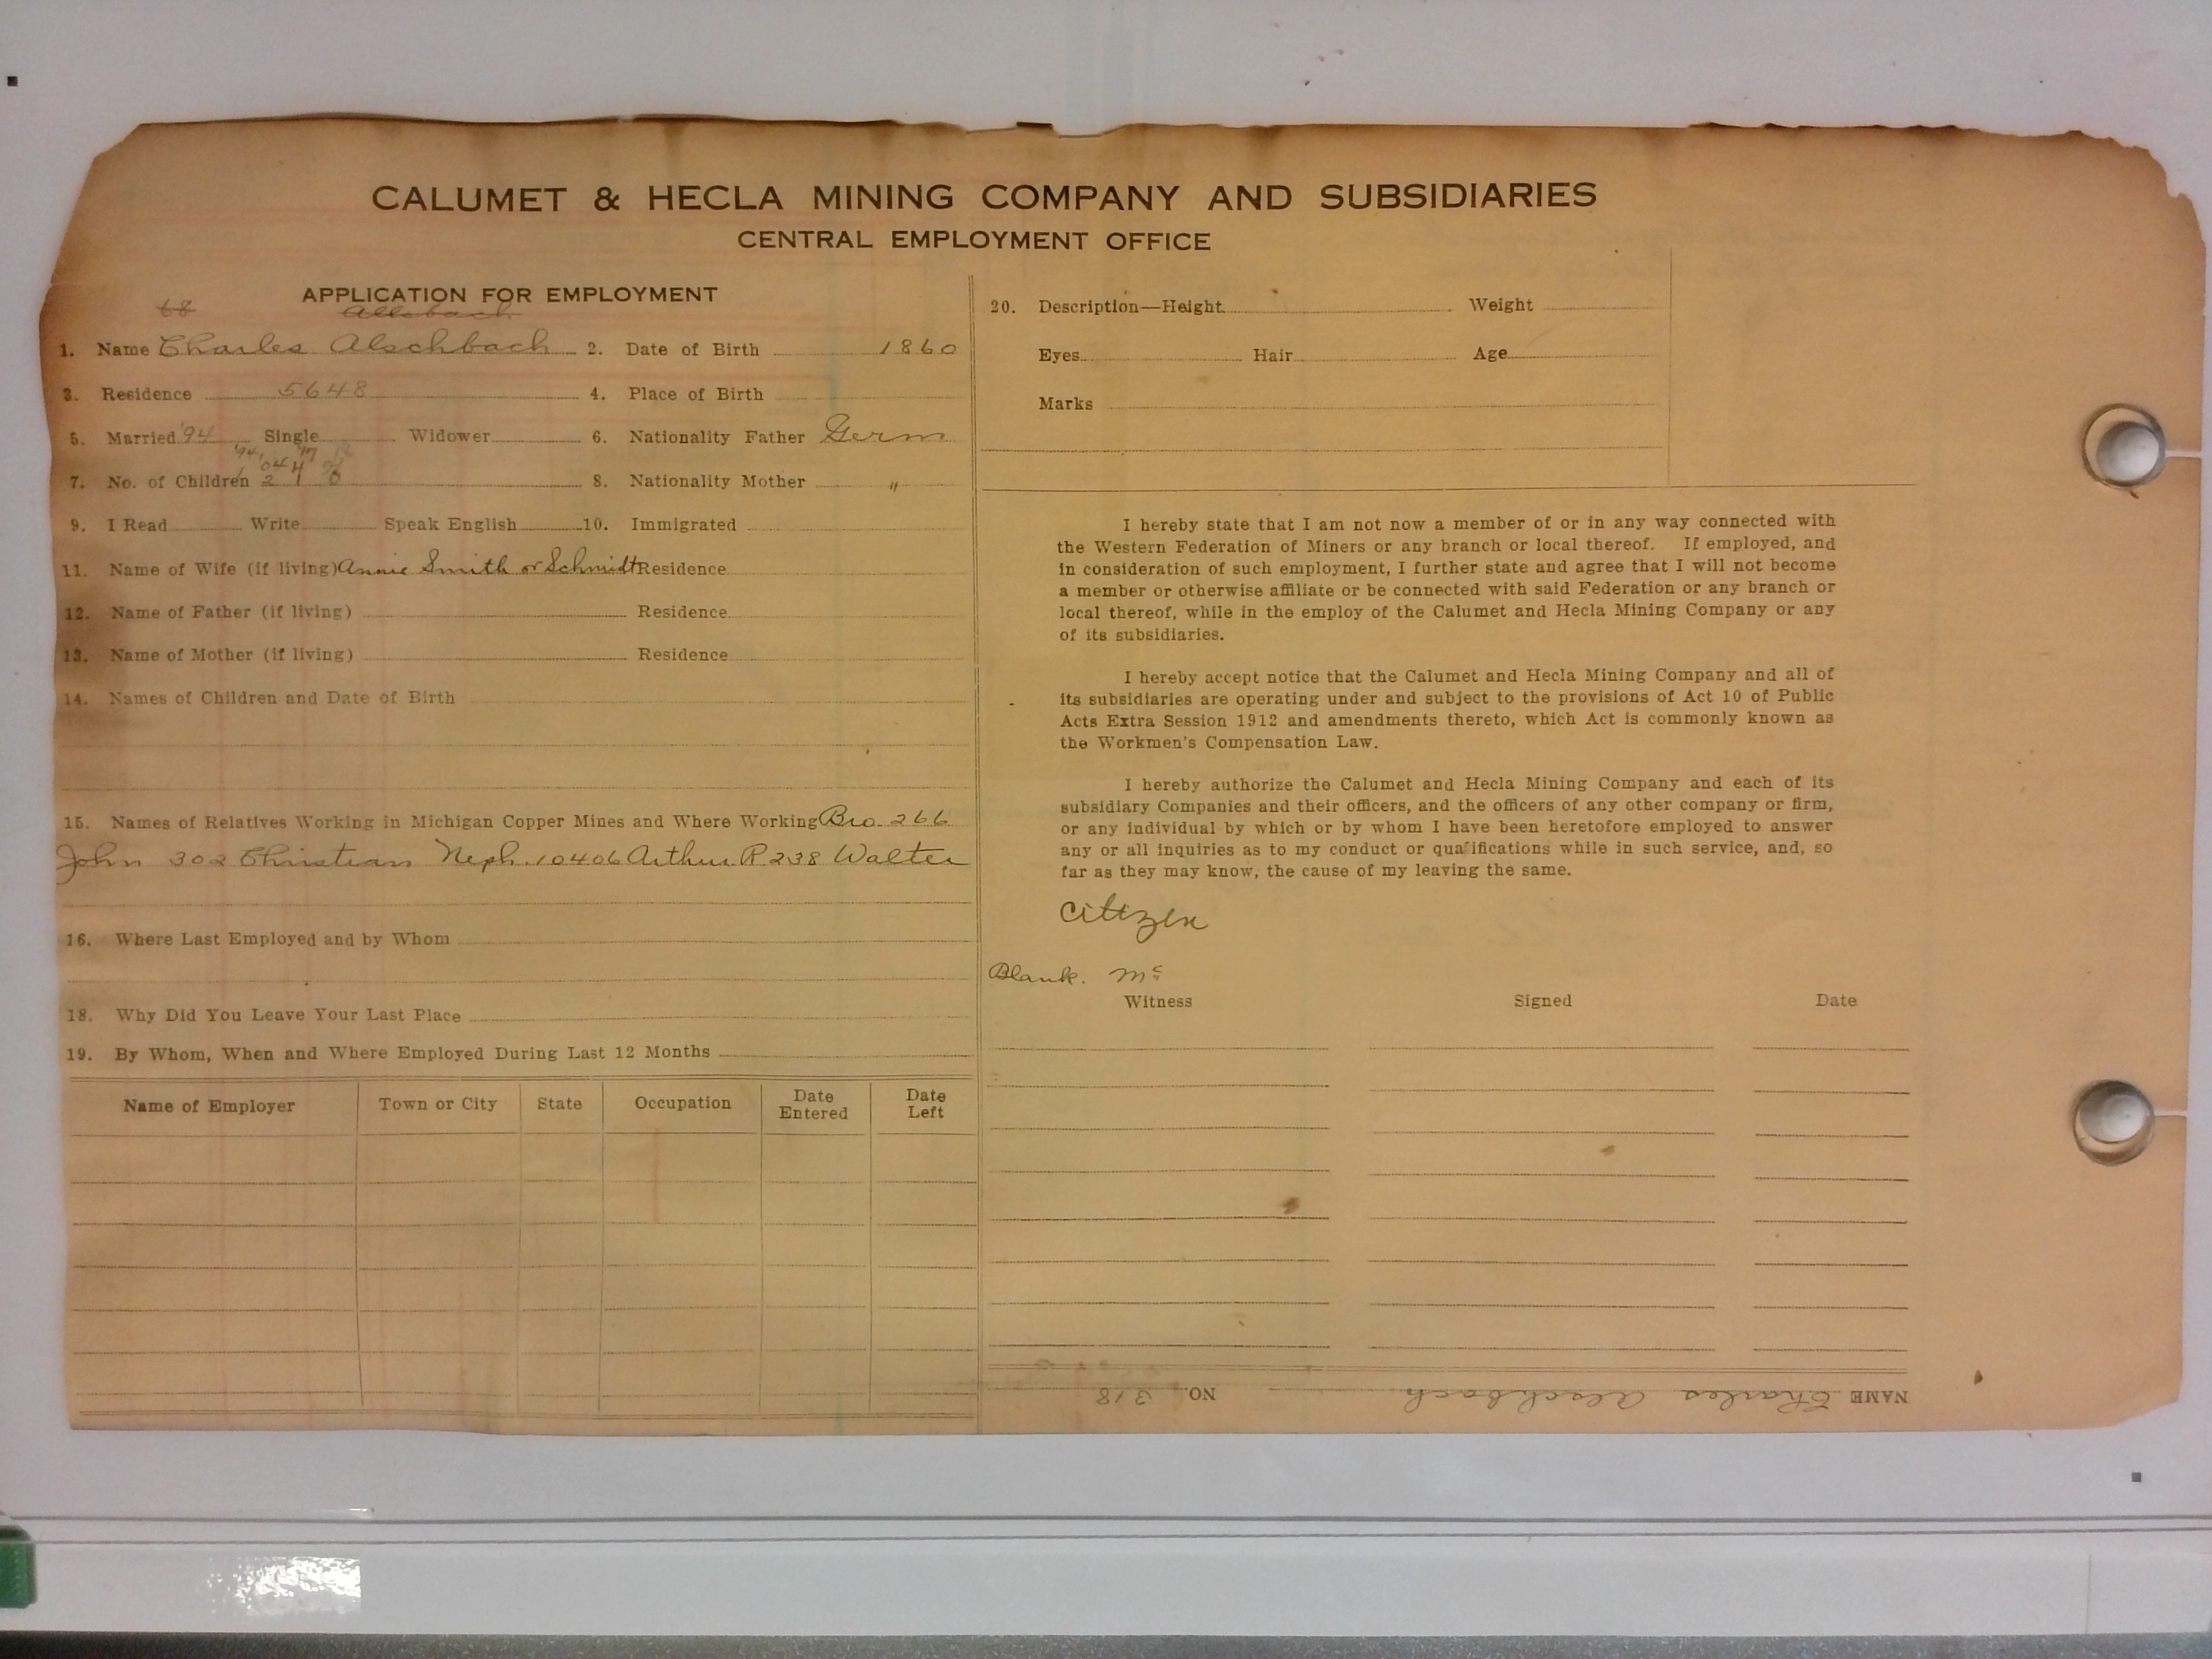 CALUMET & HECLA MINING COMPANY AND SUBSIDIARIES
CENTRAL EMPLOYMENT OFFICE
APPLICATION FOR EMPLOYMENT
68
1. Name Charles Alschbach 2. Date of Birth 1860
3. Residence 5648 4. Place of Birth
5. Married '94 Single Widower 6. Nationality Father Germ
'94, '17
04 4
7. No. of Children 2 1 8. Nationality Mother "
9. I Read Write Speak English 10. Immigrated
11. Name of Wife (if living) Annie Smith or Schmidt Residence
12. Name of Father (if living) Residence
13. Name of Mother (if living) Residence
14. Names of Children and Date of Birth
15. Names of Relatives Working in Michigan Copper Mines and Where Working Bro. 266
John 302 Christian Neph. 10406 Arthur. R 238 Walter
16. Where Last Employed and by Whom
18. Why Did You Leave Your Last Place
19. By Whom, When and Where Employed During Last 12 Months
Name of Employer Town or City State Occupation Date Entered Date Left
20. Description—Height Weight
Eyes Hair Age
Marks
I hereby state that I am not now a member of or in any way connected with
the Western Federation of Miners or any branch or local thereof. If employed, and
in consideration of such employment, I further state and agree that I will not become
a member or otherwise affiliate or be connected with said Federation or any branch or
local thereof, while in the employ of the Calumet and Hecla Mining Company or any
of its subsidiaries.
I hereby accept notice that the Calumet and Hecla Mining Company and all of
its subsidiaries are operating under and subject to the provisions of Act 10 of Public
Acts Extra Session 1912 and amendments thereto, which Act is commonly known as
the Workmen's Compensation Law.
I hereby authorize the Calumet and Hecla Mining Company and each of its
subsidiary Companies and their officers, and the officers of any other company or firm,
or any individual by which or by whom I have been heretofore employed to answer
any or all inquiries as to my conduct or qualifications while in such service, and, so
far as they may know, the cause of my leaving the same.
Citizen
Blank. Mc
Witness Signed Date
NAME Charles Alschbach NO. 318